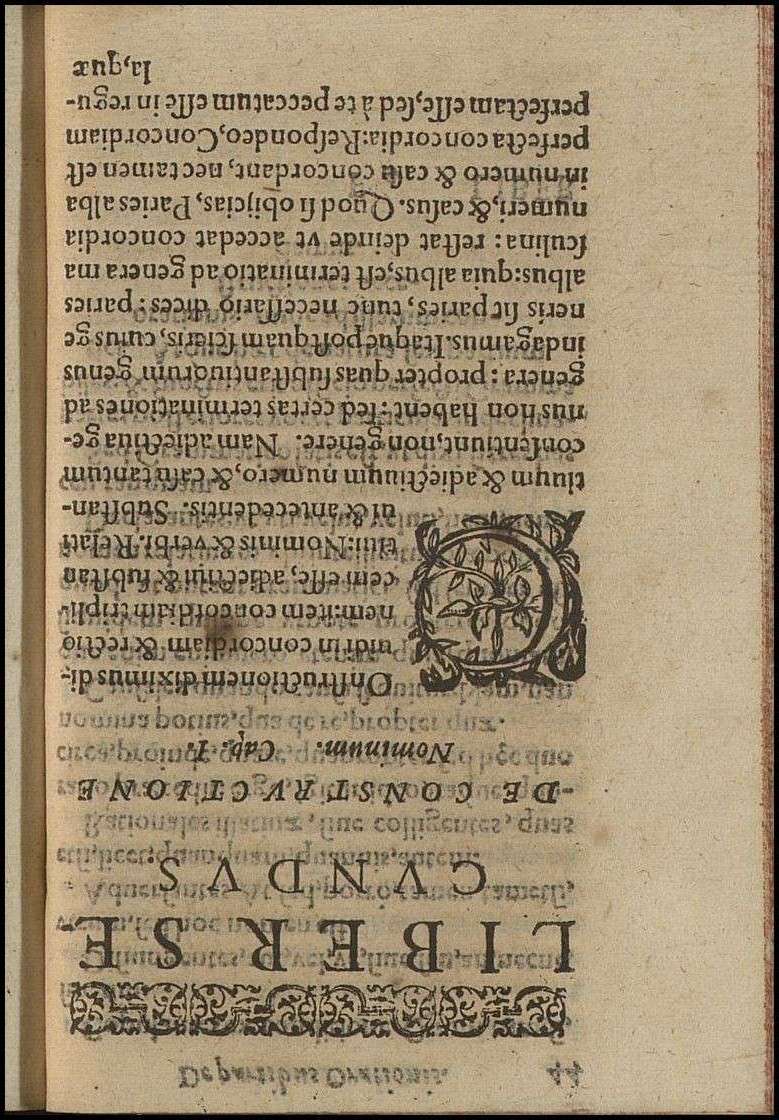 LIBER SE-
CVNDVS.
DE CONSTRVCTIONE
Nominum. Cap. I.
COnſtructionem diximus di-
uidi in concordiam & rectio
nem: item concordiam tripli-
cem eſſe, adiectiui & ſubſtan
tiui: Nominis & verbi. Relati
ui & antecedentis. Subſtan-
tiuum & adiectiuum numero, & caſu tantum
conſentiunt, non genere. Nam adiectiua ge-
nus non habent: ſed certas terminationes ad
genera: propter quas ſubſtantiuorum genus
indagamus. Itaque poſtquam ſcieris, cuius ge
neris ſit paries, tunc neceſſario dices: paries
albus: quia albus, eſt terminatio ad genera ma
ſculina: reſtat deinde vt accedat concordia
numeri, & caſus. Quod ſi obijcias, Paries alba
in numero & caſu concordant, nec tamen eſt
perfecta concordia: Reſpondeo, Concordiam
perfectam eſſe, ſed à te peccatum eſſe in regu-
la, quæ